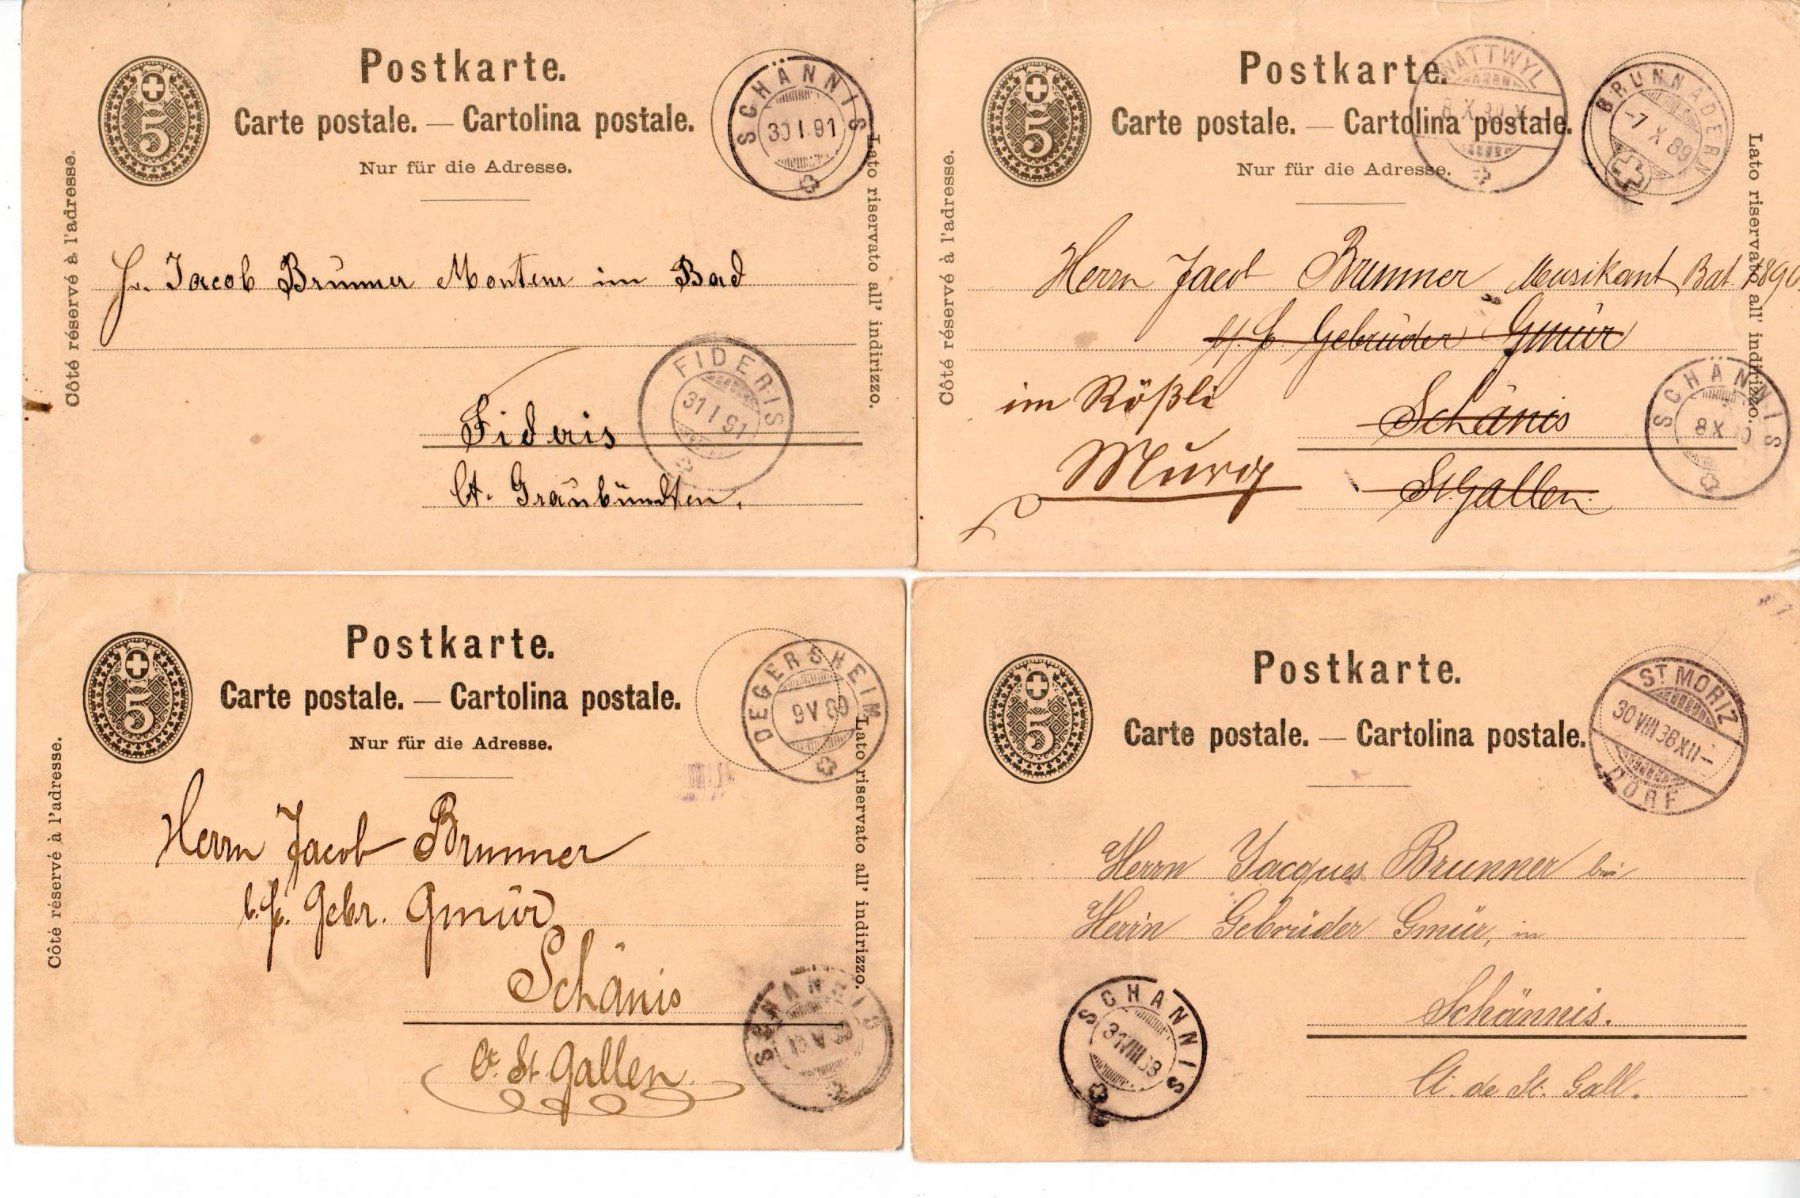 Postkarte.
Carte postale. — Cartolina postale.
Nur für die Adresse.
Côté réservé à l'adresse.
Lato riservato all' indirizzo.
5
SCHÄNNIS
30 I. 91
Hr. Jacob Brunner Monteur im Bad
Fideris
Ct. Graubündten.
FIDERIS
31 I 91
Postkarte.
Carte postale. — Cartolina postale.
Nur für die Adresse.
Côté réservé à l'adresse.
Lato riservato all' indirizzo.
5
WATTWYL
BRUNNADERN
-7 X 89
Herrn Jacob Brunner Musikant Bat.
Gebrüder Gmür
im Rößli
Schänis
Murg
St. Gallen
SCHÄNNIS
8 X
Postkarte.
Carte postale. — Cartolina postale.
Nur für die Adresse.
Côté réservé à l'adresse.
Lato riservato all' indirizzo.
5
DEGERSHEIM
9 V 89
Herrn Jacob Brunner
Gebr. Gmür
Schänis
Ct. St. Gallen
SCHÄNNIS
Postkarte.
Carte postale. — Cartolina postale.
5
ST MORIZ
30 VIII 88 XII-
DORF
Herrn Jacques Brunner bei
Herrn Gebrüder Gmür, in
Schännis.
Ct. de St. Gall.
SCHÄNNIS
31 VIII 88